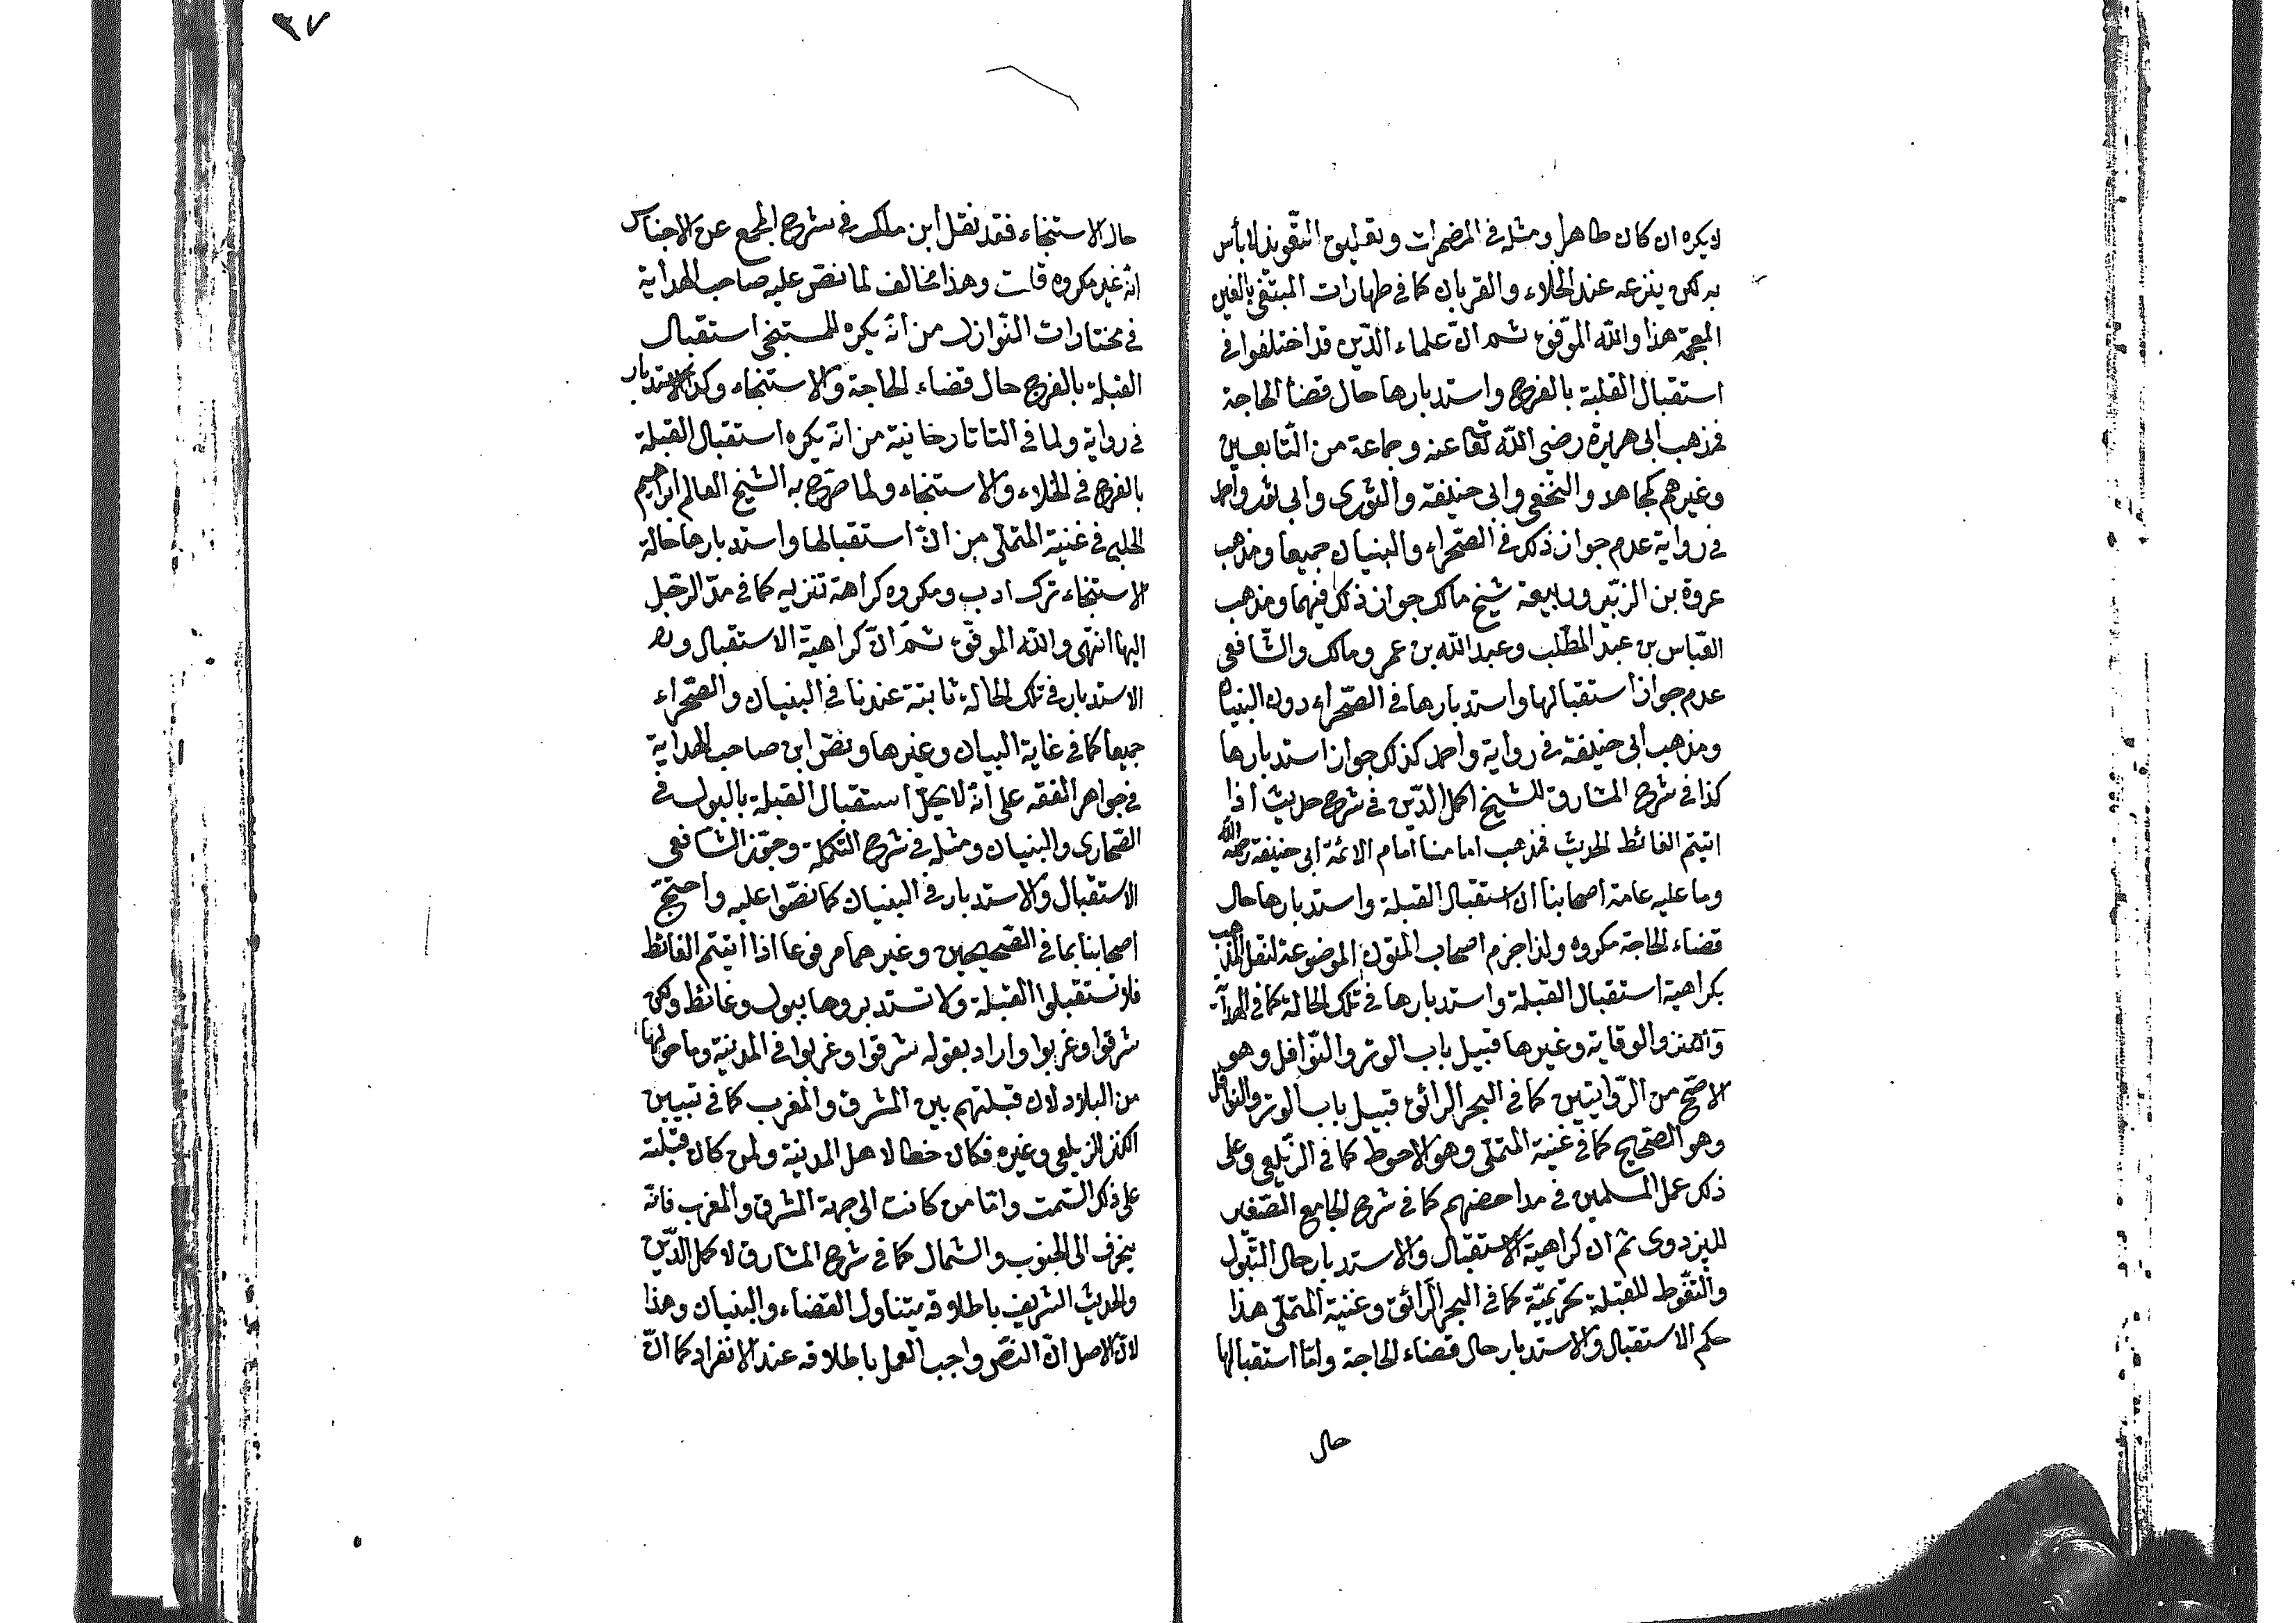 لا يكره ان كان طاهرا ومثله في المضمرات وتعليق التعويذ لا بأس
به لكن ينزعه عند الخلاء والقربان كما في طهارات المبتغى بالغين
المعجمة هذا والله الموفق ثم ان علماء الدين قد اختلفوا في
استقبال القبلة بالفرج واستدبارها حال قضاء الحاجة
فمذهب ابى هريرة رضى الله تعا عنه وجماعة من التابعين
وغيرهم كمجاهد والنخعى وابى حنيفة والثورى وابى ثور واحمد
في رواية عدم جواز ذلك في الصحراء والبنيان جميعا ومذهب
عروة بن الزبير وربيعة شيخ مالك جواز ذلك فيهما ومذهب
العباس بن عبد المطلب وعبد الله بن عمر ومالك والشافعى
عدم جواز استقبالها واستدبارها في الصحراء دون البنيان
ومذهب ابى حنيفة في رواية واحمد كذلك جواز استدبارها
كذا في شرح المشارق للشيخ اكمل الدين في شرح حديث اذا
اتيتم الغائط الحديث فمذهب امامنا امام الائمة ابى حنيفة رحمه الله
وما عليه عامة اصحابنا ان استقبال القبلة واستدبارها حال
قضاء الحاجة مكروه ولذا جزم اصحاب المتون الموضوعة لنقل المذهب
بكراهية استقبال القبلة واستدبارها في تلك الحالة كما في الهداية
والكنز والوقاية وغيرها قبيل باب الوتر والنوافل وهو
الاصح من الروايتين كما في البحر الرائق قبيل باب الوتر والنوافل
وهو الصحيح كما في غنية المتملى وهو الاحوط كما في الزيلعى وعلى
ذلك عمل المسلمين في مداحضهم كما في شرح الجامع الصغير
للبزدوى ثم ان كراهية الاستقبال والاستدبار حال التبول
والتغوط للقبلة تحريمية كما في البحر الرائق وغنية المتملى هذا
حكم الاستقبال والاستدبار حال قضاء الحاجة واما استقبالها
حال
٣٧
حال الاستنجاء فقد نقل ابن ملك في شرح المجمع عن الاجناس
انه غير مكروه قلت وهذا مخالف لما نص عليه صاحب الهداية
في مختارات النوازل من انه يكره للمستنجى استقبال
القبلة بالفرج حال قضاء الحاجة والاستنجاء وكذا الاستدبار
في رواية ولما في التاتارخانية من انه يكره استقبال القبلة
بالفرج في الخلاء والاستنجاء ولما صرح به الشيخ العالم ابراهيم
الحلبى في غنية المتملى من ان استقبالها واستدبارها حالة
الاستنجاء ترك ادب ومكروه كراهة تنزيه كما في مد الرجل
اليها انتهى والله الموفق ثم ان كراهية الاستقبال و
الاستدبار في تلك الحالة ثابتة عندنا في البنيان والصحراء
جميعا كما في غاية البيان وغيرها ونص ابن صاحب الهداية
في جواهر الفقه على انه لا يحل استقبال القبلة بالبول في
الصحارى والبنيان ومثله في شرح التكملة وجوز الشافعى
الاستقبال والاستدبار في البنيان كما نصوا عليه واحتج
اصحابنا بما في الصحيحين وغيرهما مرفوعا اذا اتيتم الغائط
فلا تستقبلوا القبلة ولا تستدبروها ببول وغائط ولكن
شرقوا وغربوا واراد بقوله شرقوا وغربوا في المدينة وما حولها
من البلاد لان قبلتهم بين المشرق والمغرب كما في تبيين
الكنز للزيلعى وغيره فكان خطا لاهل المدينة ولمن كان قبلته
على ذلك السمت واما من كانت الى جهة المشرق والمغرب فانه
ينحرف الى الجنوب والشمال كما في شرح المشارق لاكمل الدين
والحديث الشريف باطلاقه يتناول الفضاء والبنيان وهذا
لان الاصل ان النص واجب العمل باطلاقه عند الانفراد كما ان